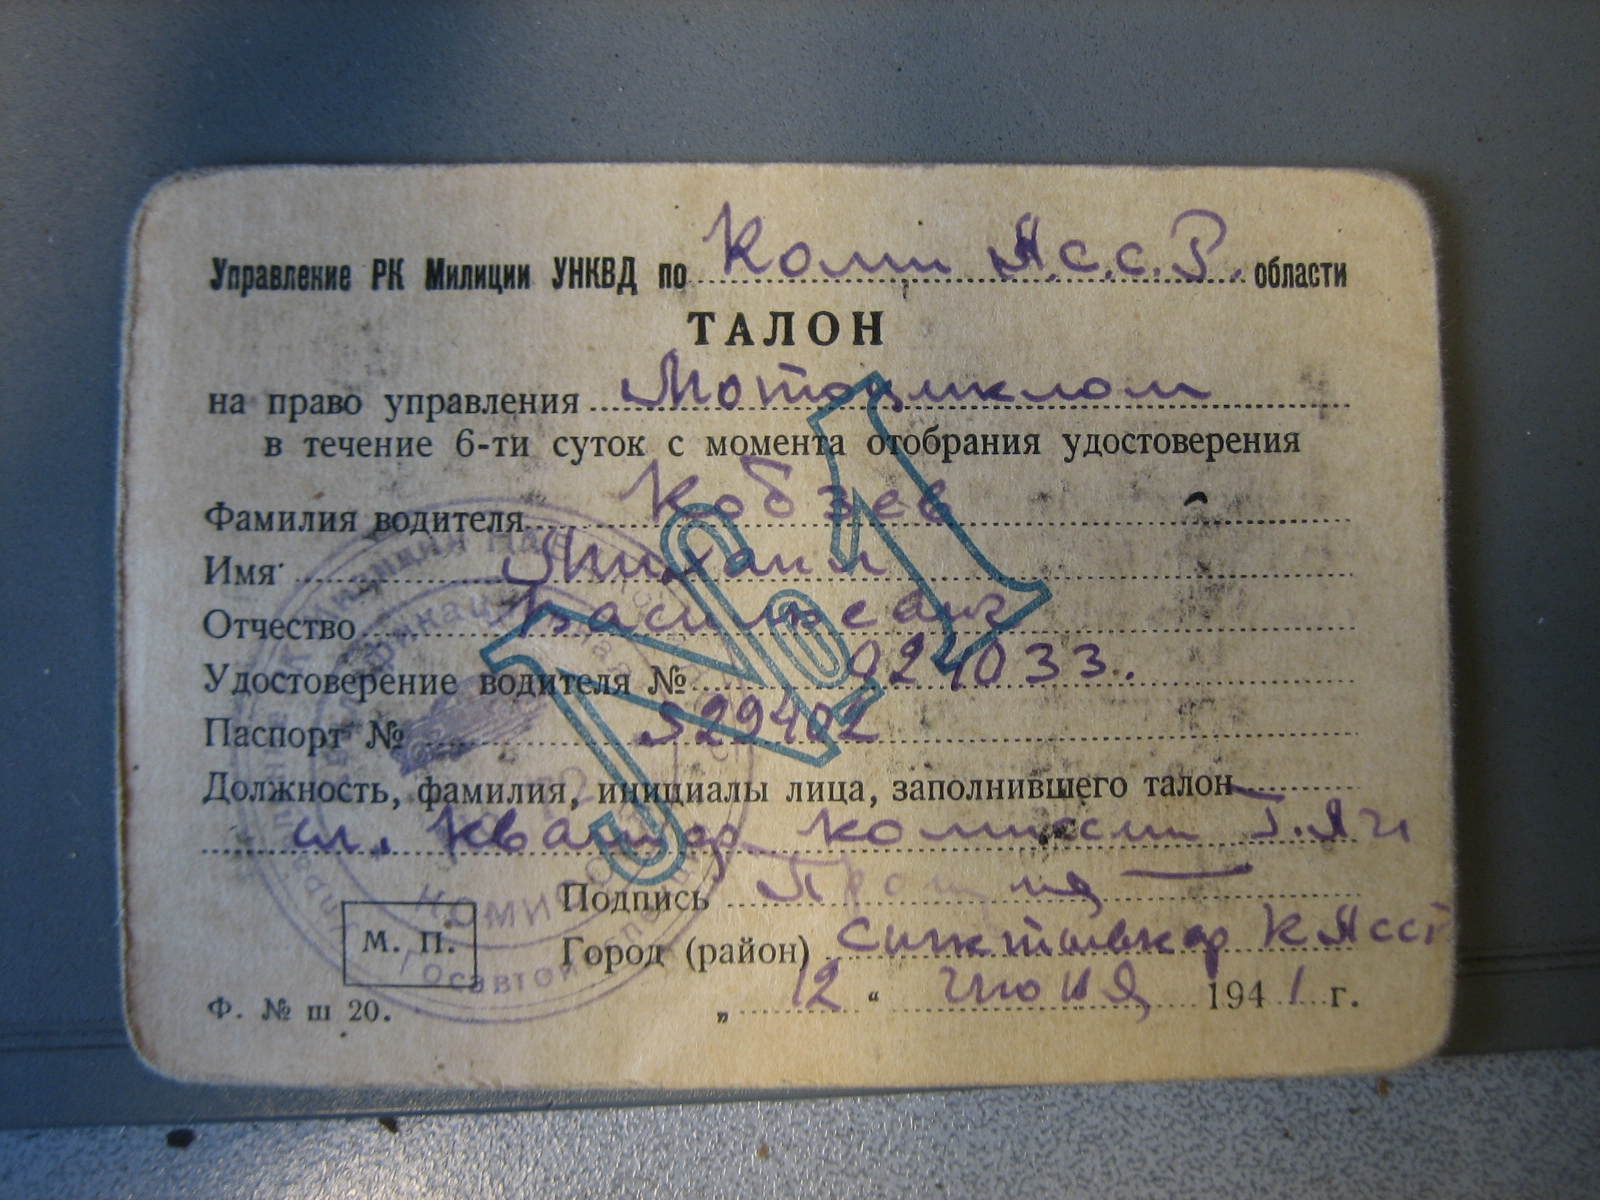 Управление РК Милиции УНКВД по Коми А.с.с.Р. области
ТАЛОН
на право управления Мотоциклом
в течение 6-ти суток с момента отобрания удостоверения
Фамилия водителя Кобзев
Имя Михаил
Отчество
Удостоверение водителя № 024033.
Паспорт № 529402
Должность, фамилия, инициалы лица, заполнившего талон
комиссии
Подпись
Город (район) Сыктывкар К АССР
М. П.
„ 12 “ июня 1941 г.
Ф. № ш 20.
№1